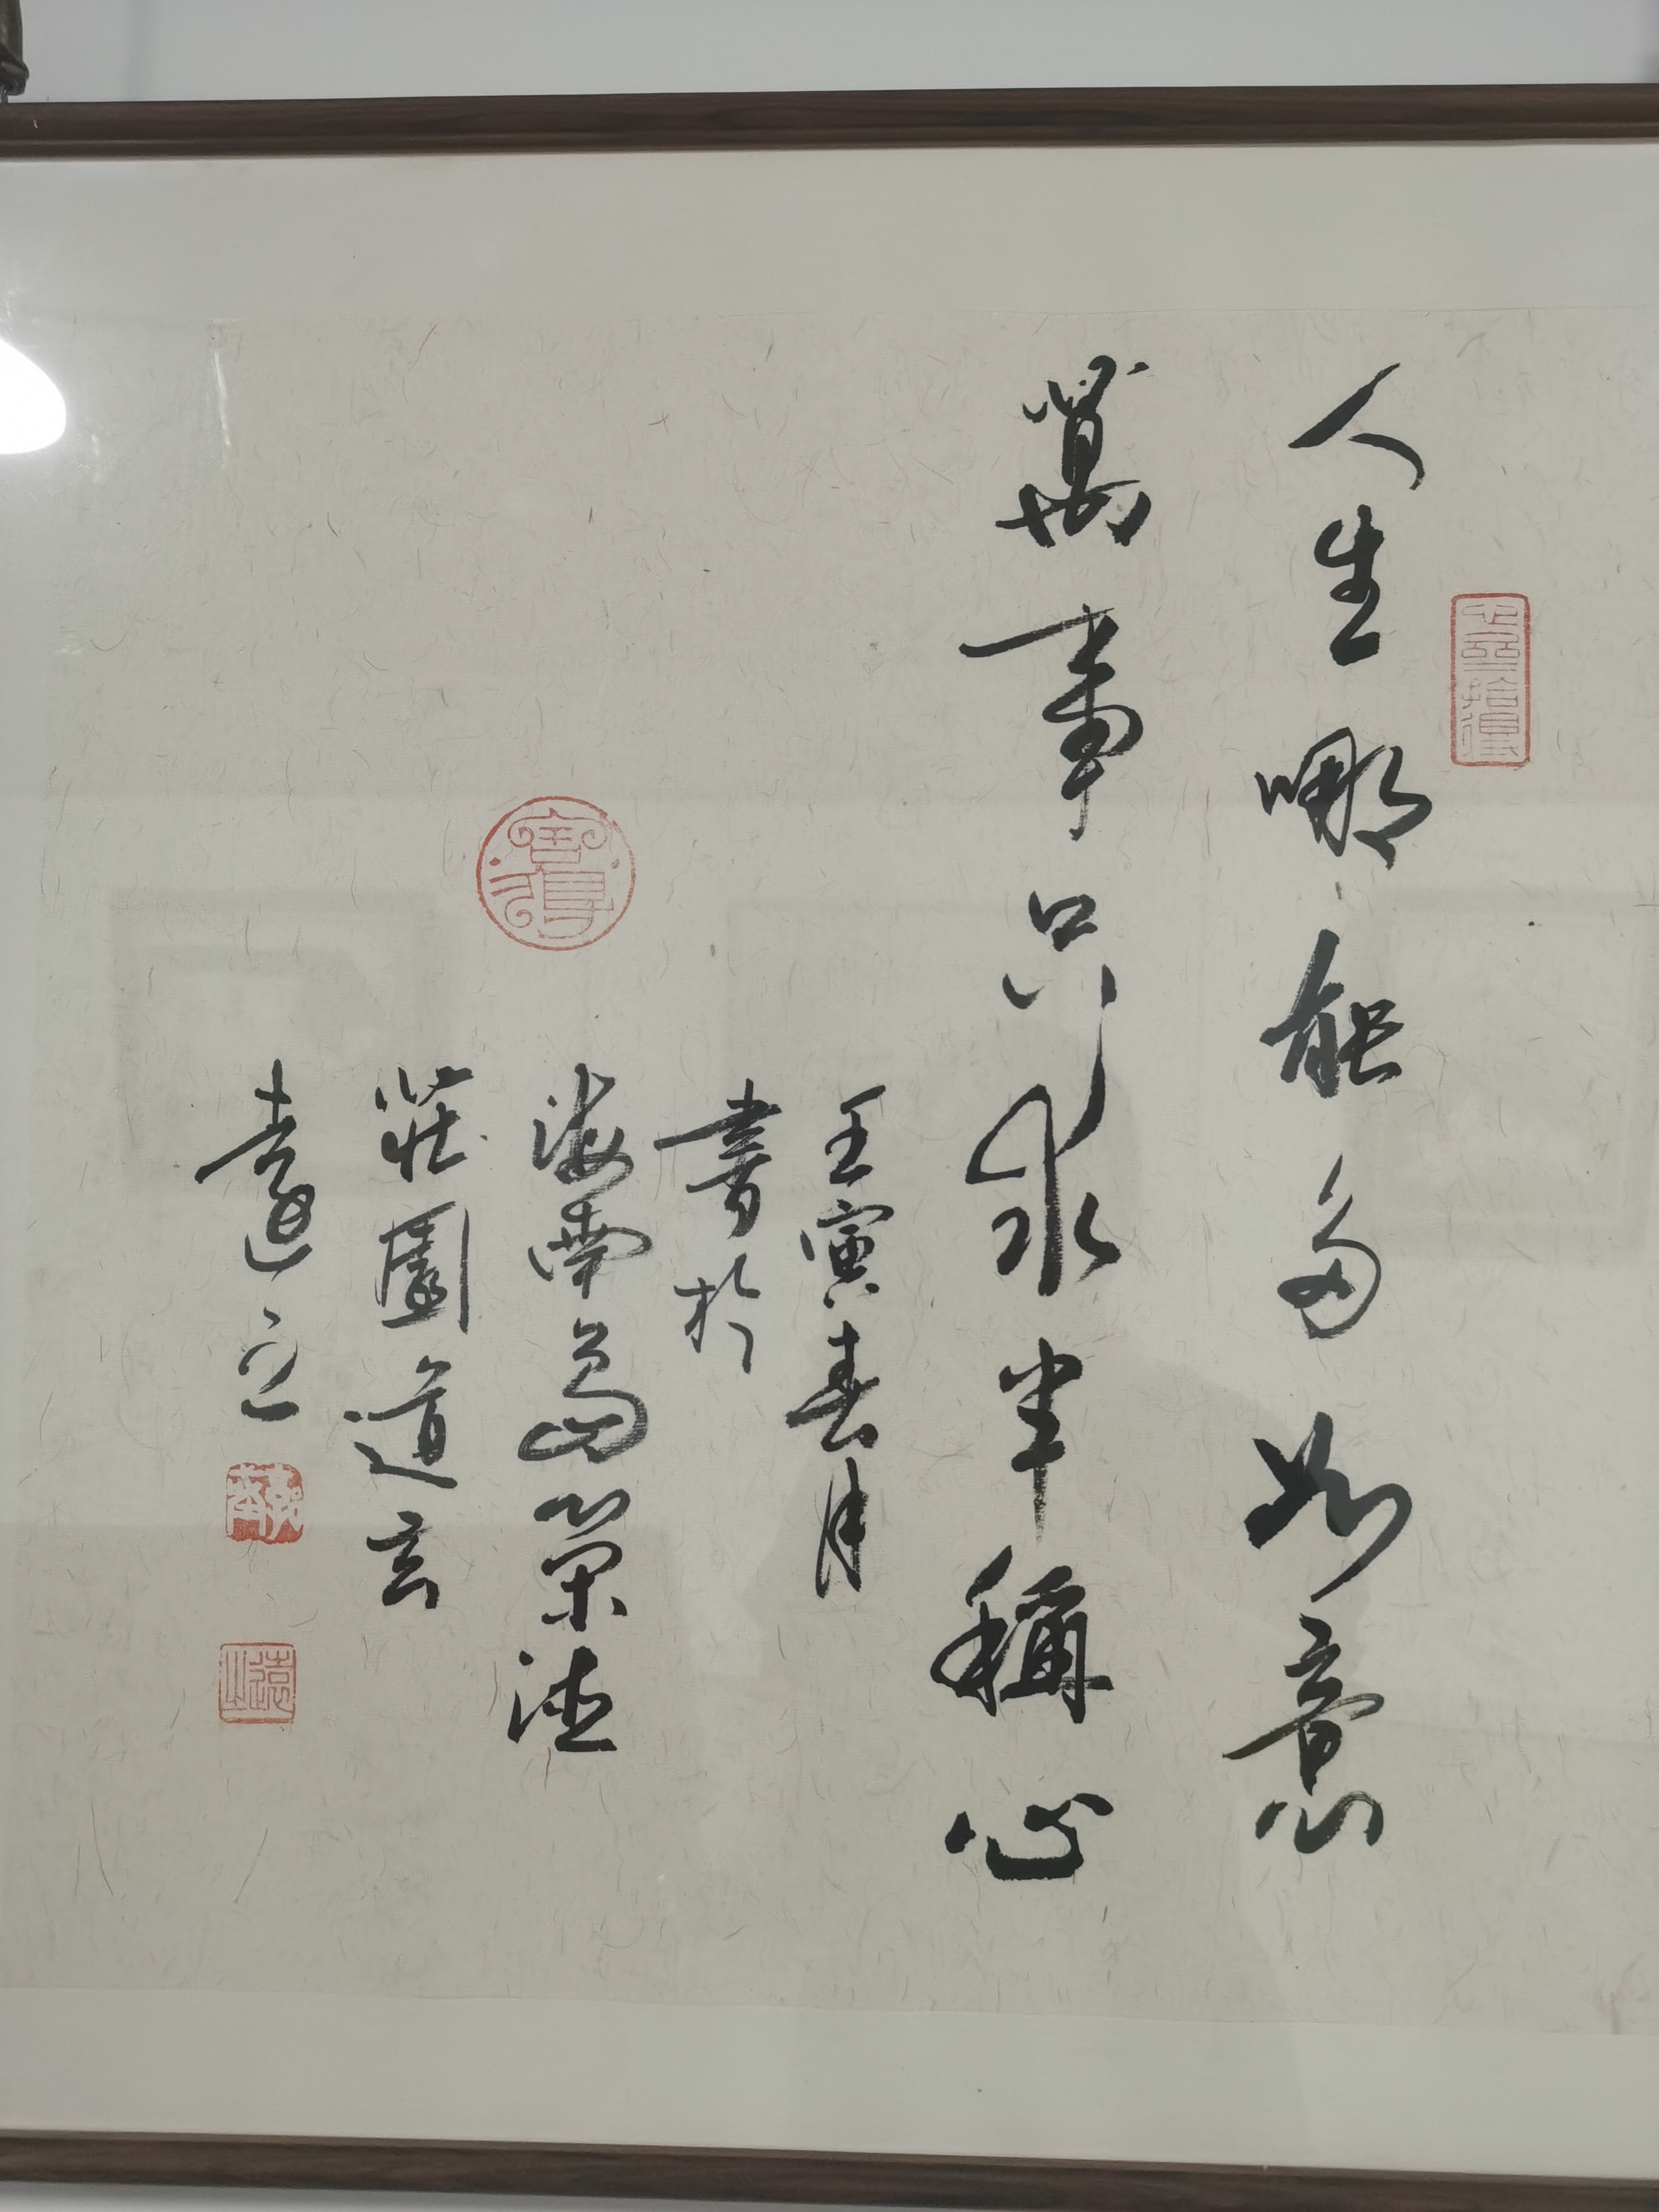 人生哪能多如意
萬事只求半稱心
壬寅春月
書於
海南島榮德
莊園道玄
遠之